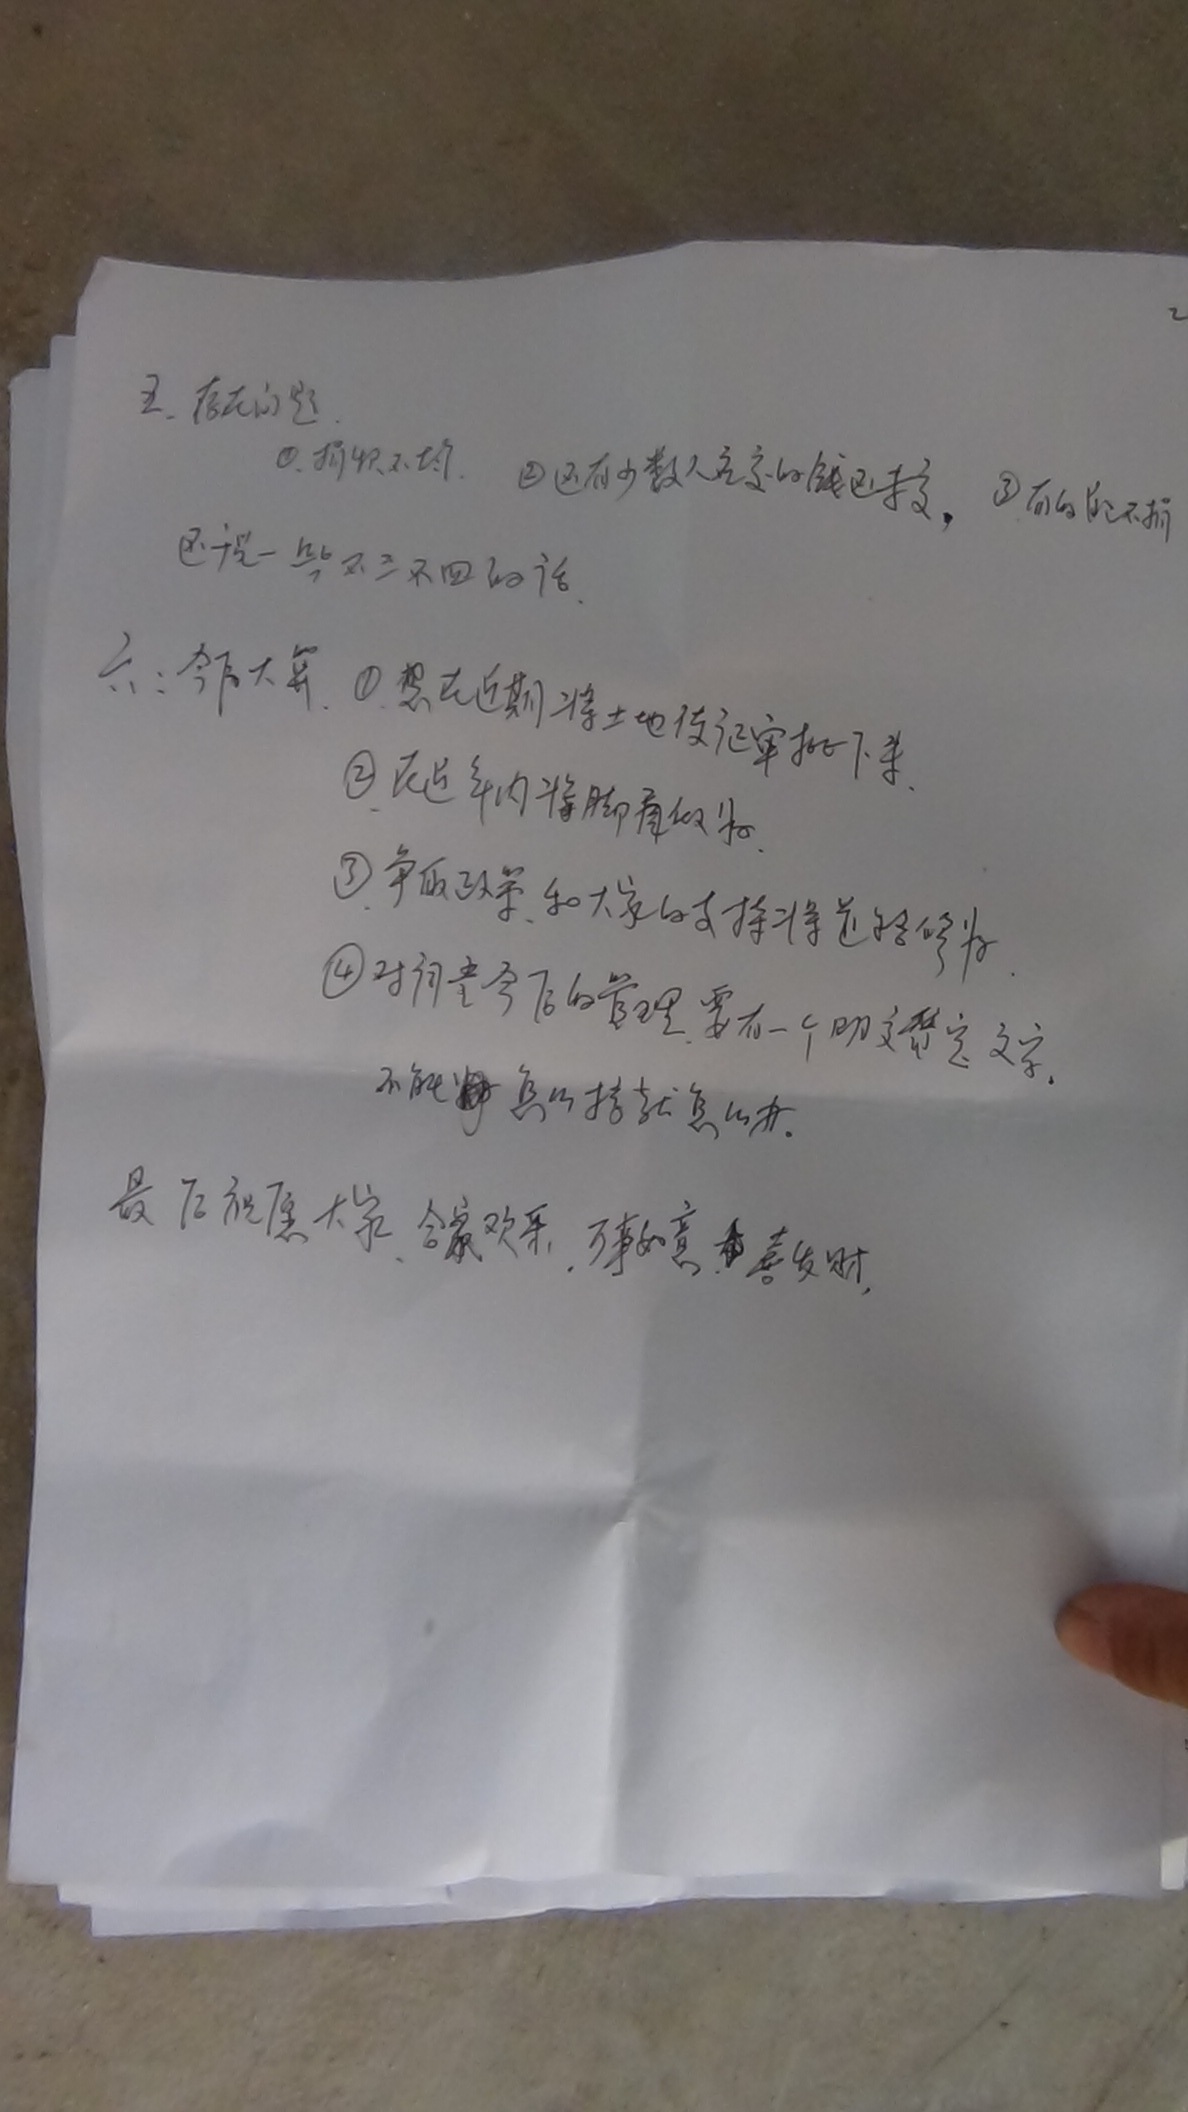 2
五、存在问题.
①.捐款不均. ②还有少数人应交的钱还未交, ③有的自己不捐
还说一些不三不四的话.
六: 今后大算. ①.想在近期将土地使证审批下来.
②.在近年内将脚屋做好.
③.争取政策、和大家的支持将道路修好.
④对祠堂今后的管理.要有一个明文暂定文字.
不能 怎么搞就怎么办.
最后祝愿大家、合家欢乐.万事如意 喜发财,